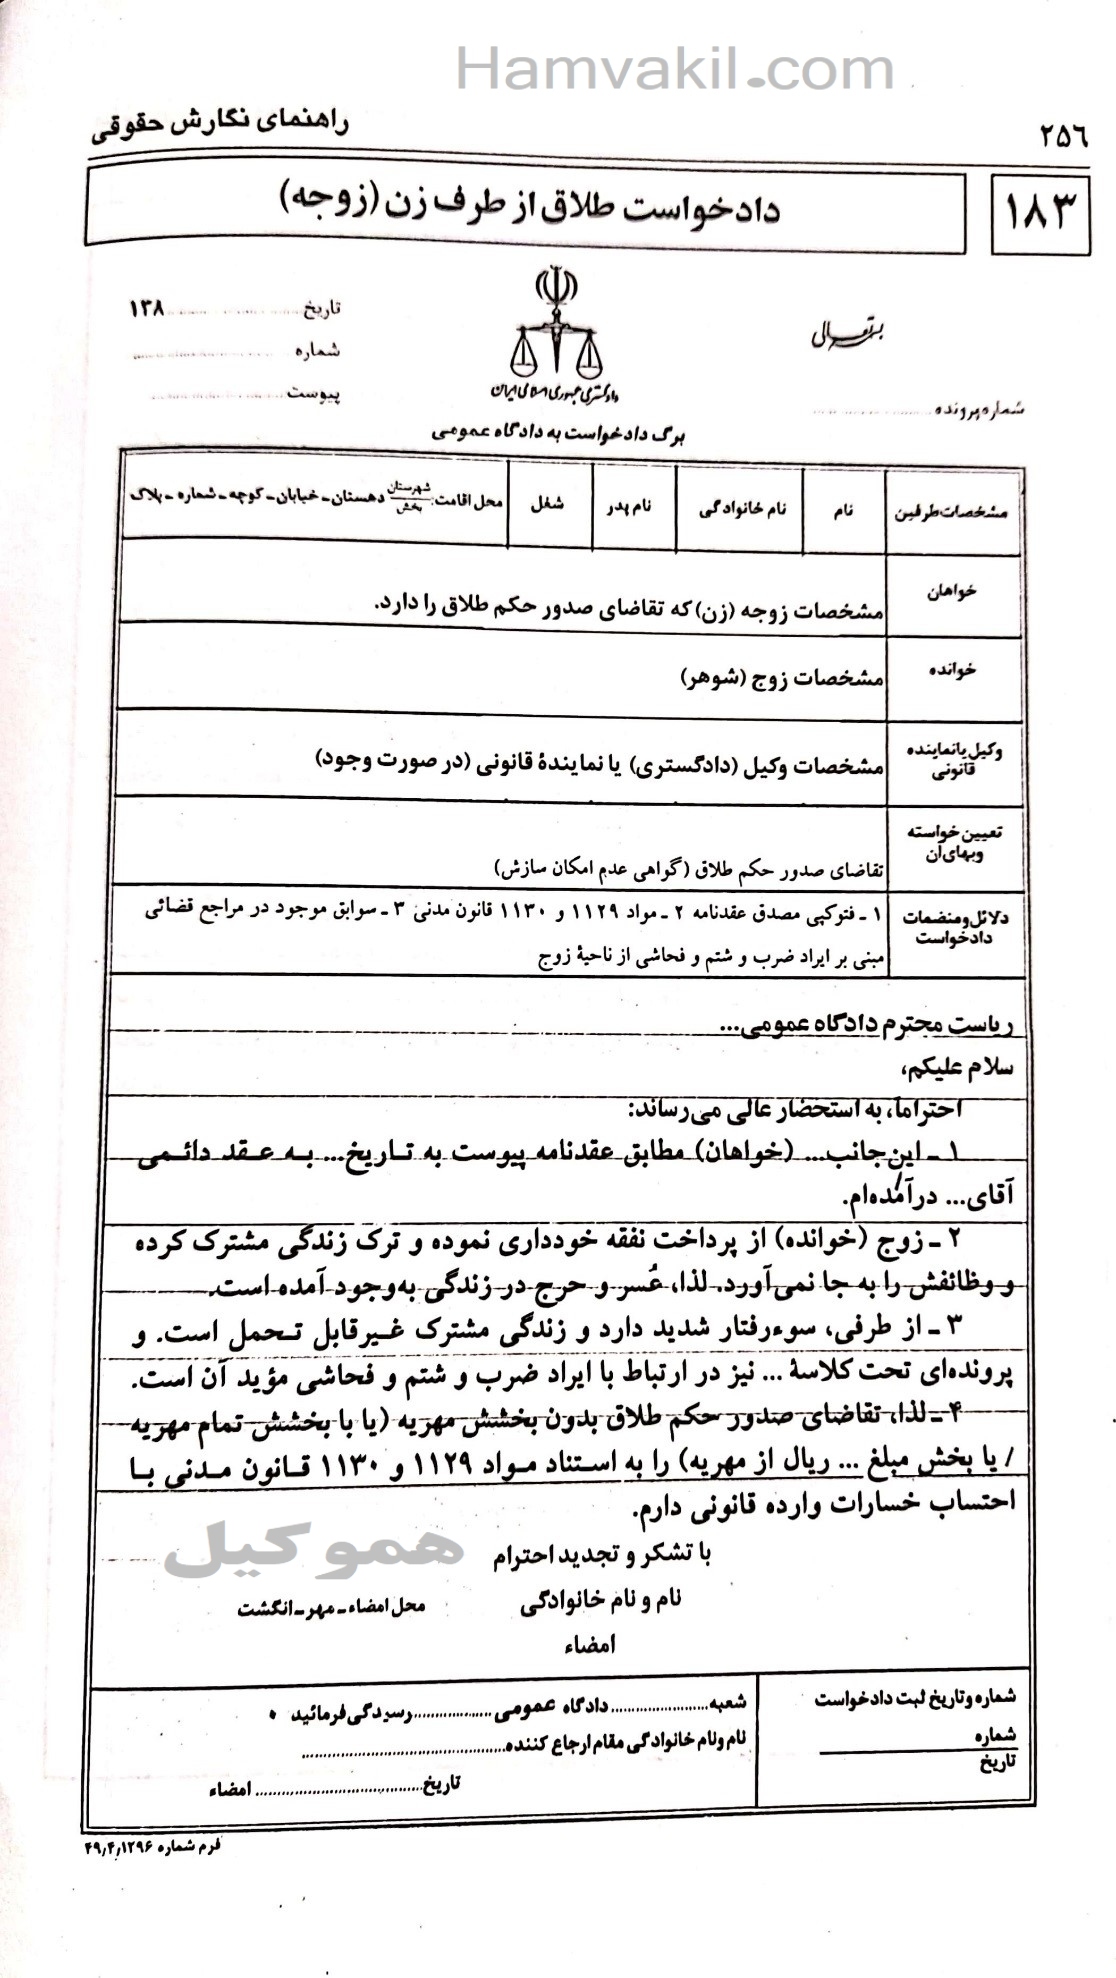 Hamvakil.com
۲۵۶
راهنمای نگارش حقوقی
۱۸۳
دادخواست طلاق از طرف زن (زوجه)
بسمه تعالی
تاریخ ........ ۱۳۸
شماره ........
پیوست ........
دادگستری جمهوری اسلامی ایران
شماره پرونده ........
برگ دادخواست به دادگاه عمومی
مشخصات طرفین
نام
نام خانوادگی
نام پدر
شغل
محل اقامت: شهرستان / بخش دهستان ـ خیابان ـ کوچه ـ شماره ـ پلاک
خواهان
مشخصات زوجه (زن) که تقاضای صدور حکم طلاق را دارد.
خوانده
مشخصات زوج (شوهر)
وکیل یا نماینده
قانونی
مشخصات وکیل (دادگستری) یا نمایندهٔ قانونی (در صورت وجود)
تعیین خواسته
وبهای ان
تقاضای صدور حکم طلاق (گواهی عدم امکان سازش)
دلائل ومنضمات
دادخواست
۱ ـ فتوکپی مصدق عقدنامه ۲ ـ مواد ۱۱۲۹ و ۱۱۳۰ قانون مدنی ۳ ـ سوابق موجود در مراجع قضائی
مبنی بر ایراد ضرب و شتم و فحاشی از ناحیهٔ زوج
ریاست محترم دادگاه عمومی...
سلام علیکم،
احتراماً، به استحضار عالی می‌رساند:
۱ ـ این‌جانب... (خواهان) مطابق عقدنامه پیوست به تاریخ... به عقد دائمی
آقای... درآمده‌ام.
۲ ـ زوج (خوانده) از پرداخت نفقه خودداری نموده و ترک زندگی مشترک کرده
و وظائفش را به جا نمی‌آورد. لذا، عُسر و حرج در زندگی به‌وجود آمده است.
۳ ـ از طرفی، سوءرفتار شدید دارد و زندگی مشترک غیرقابل تحمل است. و
پرونده‌ای تحت کلاسهٔ ... نیز در ارتباط با ایراد ضرب و شتم و فحاشی مؤید آن است.
۴ ـ لذا، تقاضای صدور حکم طلاق بدون بخشش مهریه (یا با بخشش تمام مهریه
/ یا بخش مبلغ ... ریال از مهریه) را به استناد مواد ۱۱۲۹ و ۱۱۳۰ قانون مدنی با
احتساب خسارات وارده قانونی دارم.
با تشکر و تجدید احترام
هموکیل
نام و نام خانوادگی
محل امضاء ـ مهر ـ انگشت
امضاء
شماره وتاریخ ثبت دادخواست
شماره
تاریخ
شعبه ........ دادگاه عمومی ........ رسیدگی فرمائید
نام ونام خانوادگی مقام ارجاع کننده ........
تاریخ ........ امضاء
فرم شماره ۴۹٫۴٫۱۲۹۶